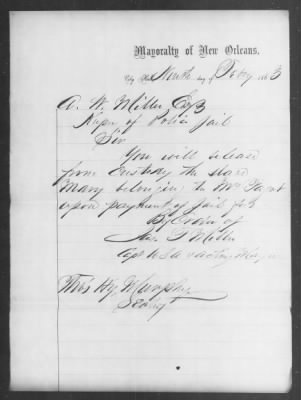 Mayoralty of New Orleans.
City Hall, Ninth day of Feby 1863
A. W. Miller Esq
Keeper of Police Jail
Sir
You will release
from Custody the slave
Mary belonging to Mr
upon payment of Jail fees
By Order of
Jas. F Miller
Capt U.S.A & acting Mayor
Thos Hy. Murphy
Secty